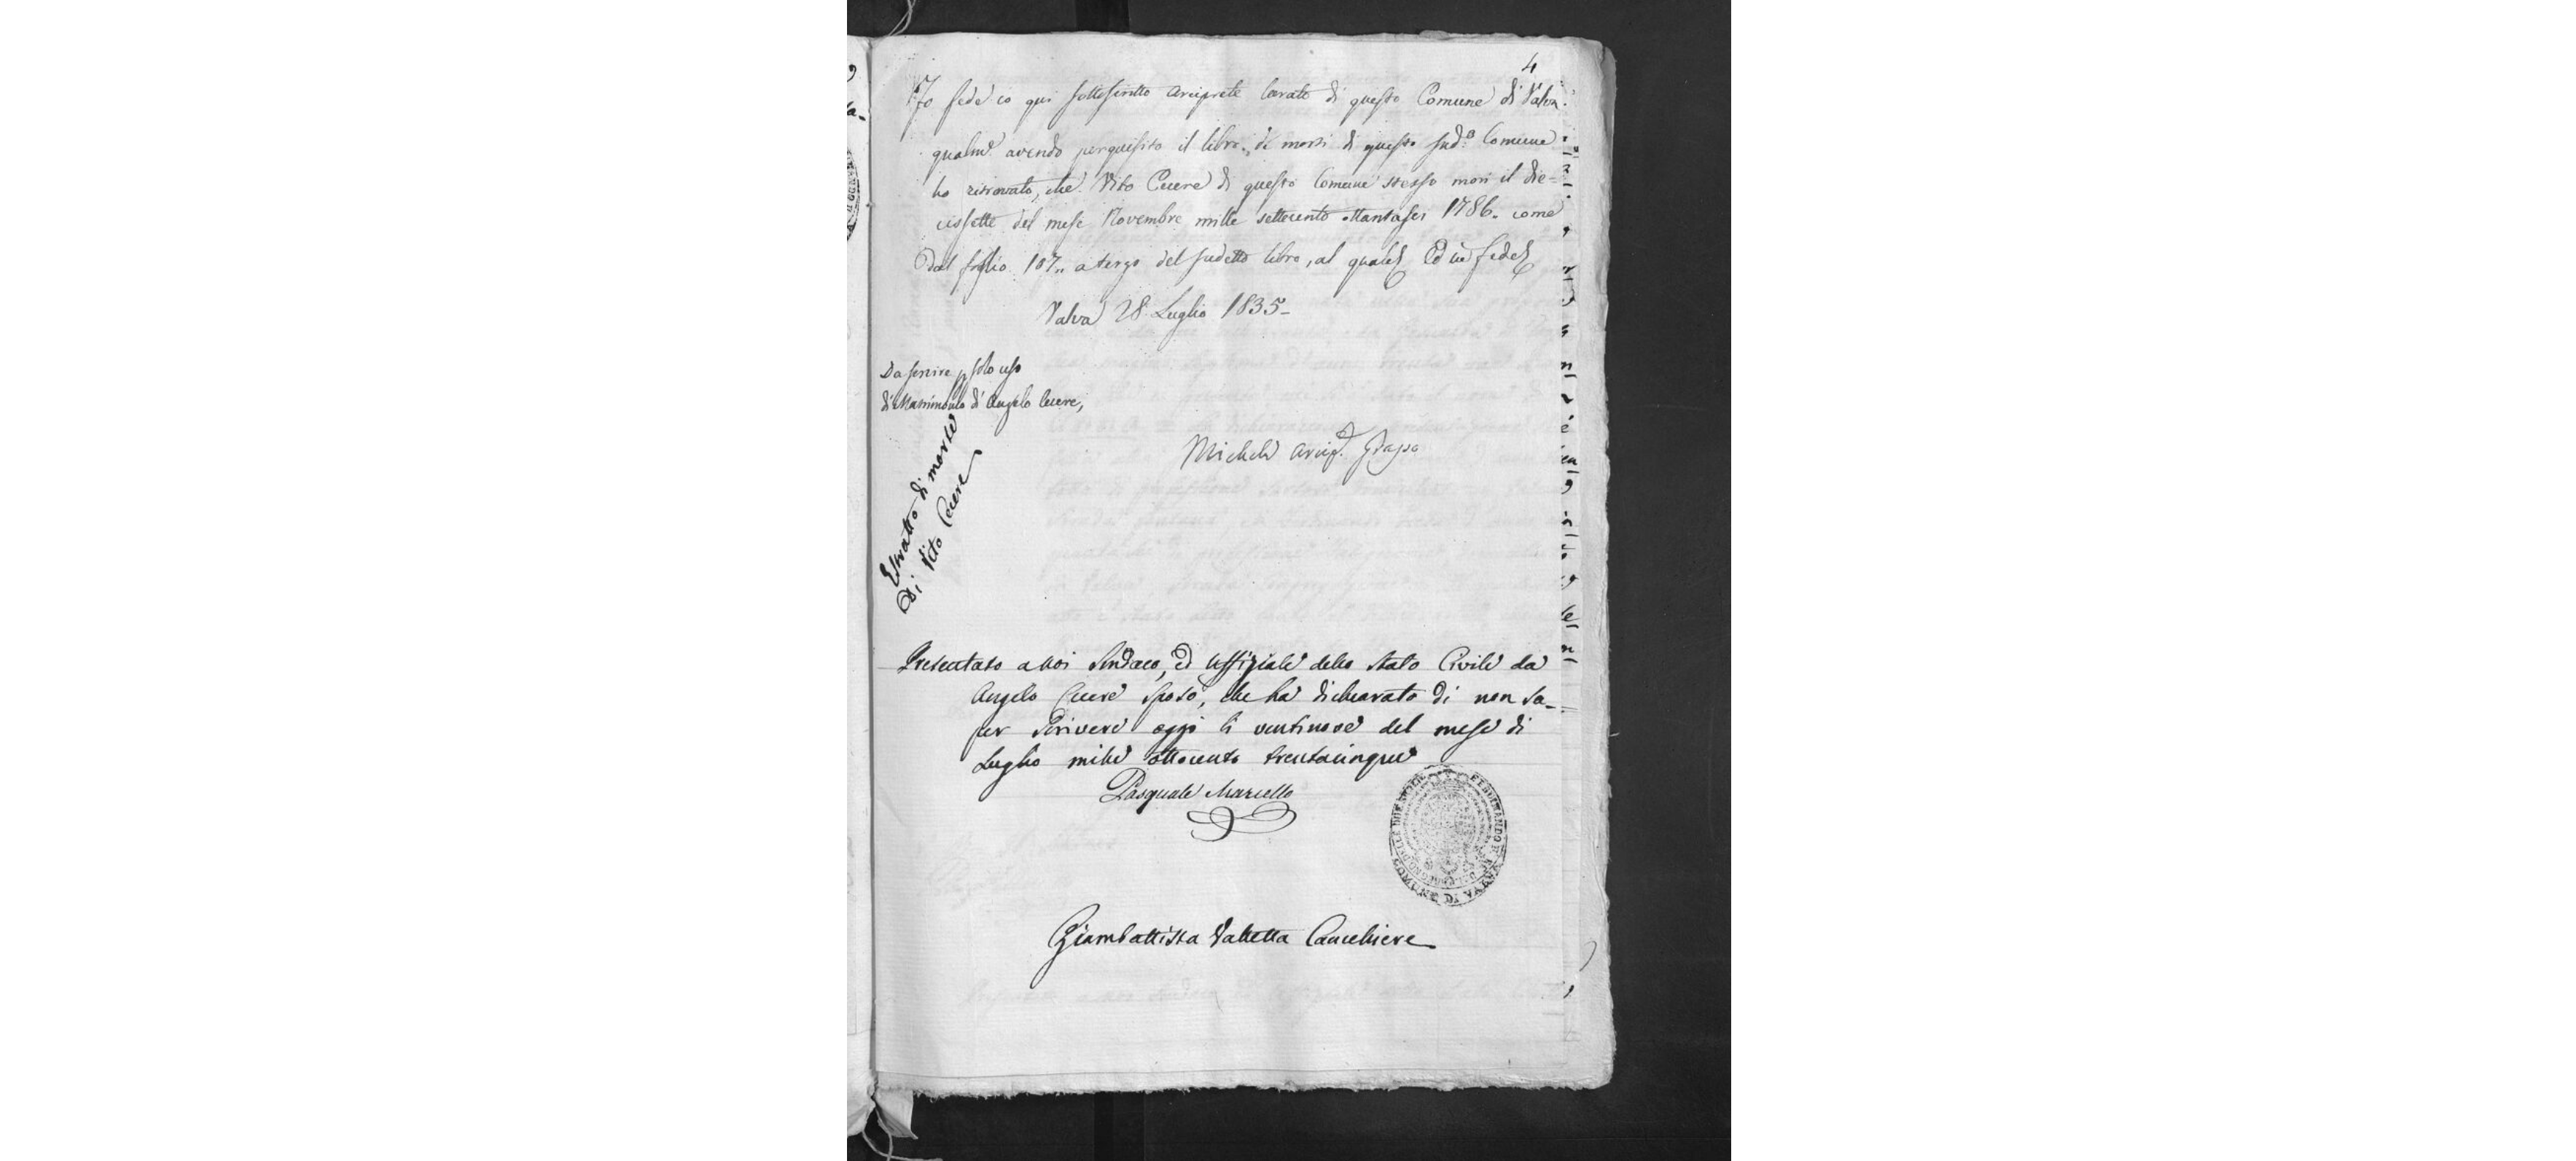 4
Fo fede io qui sottoscritto Arciprete Curato di questo Comune di Valva
qualm.e avendo perquisito il libro de morti di questo sud.o Comune
ho ritrovato, che Vito Cuere di questo Comune stesso morì il die-
cissette del mese Novembre mille settecento ottantasei 1786. come
dal foglio 107,, a tergo del sudetto libro, al quale Ed in fede
Valva 28 Luglio 1835-
Da servire p solo uso
di Matrimonio di Angelo Cuere,
Michele Arcip.e Grasso
Estratto di morte
di Vito Cuere
Presentato a noi Sindaco, ed Uffiziale dello Stato Civile da
Angelo Cuere sposo, che ha dichiarato di non sa-
per scrivere oggi li ventinove del mese di
Luglio mille ottocento trentacinque
Pasquale Marcello
COMUNE DI VALVA
Giambattista Valletta Cancelliere